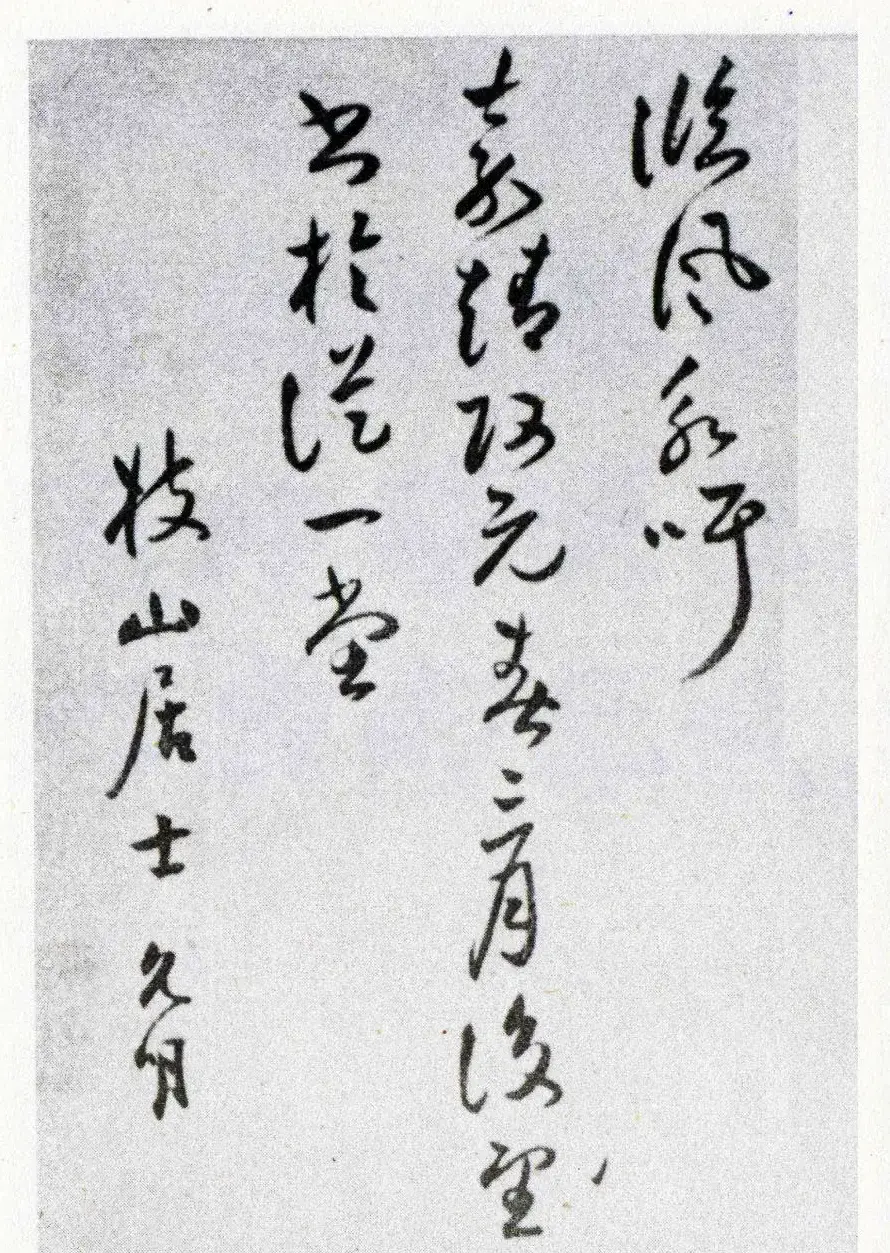 臨風永吁
嘉靖改元春三月後望
書於從一堂
枝山居士允明